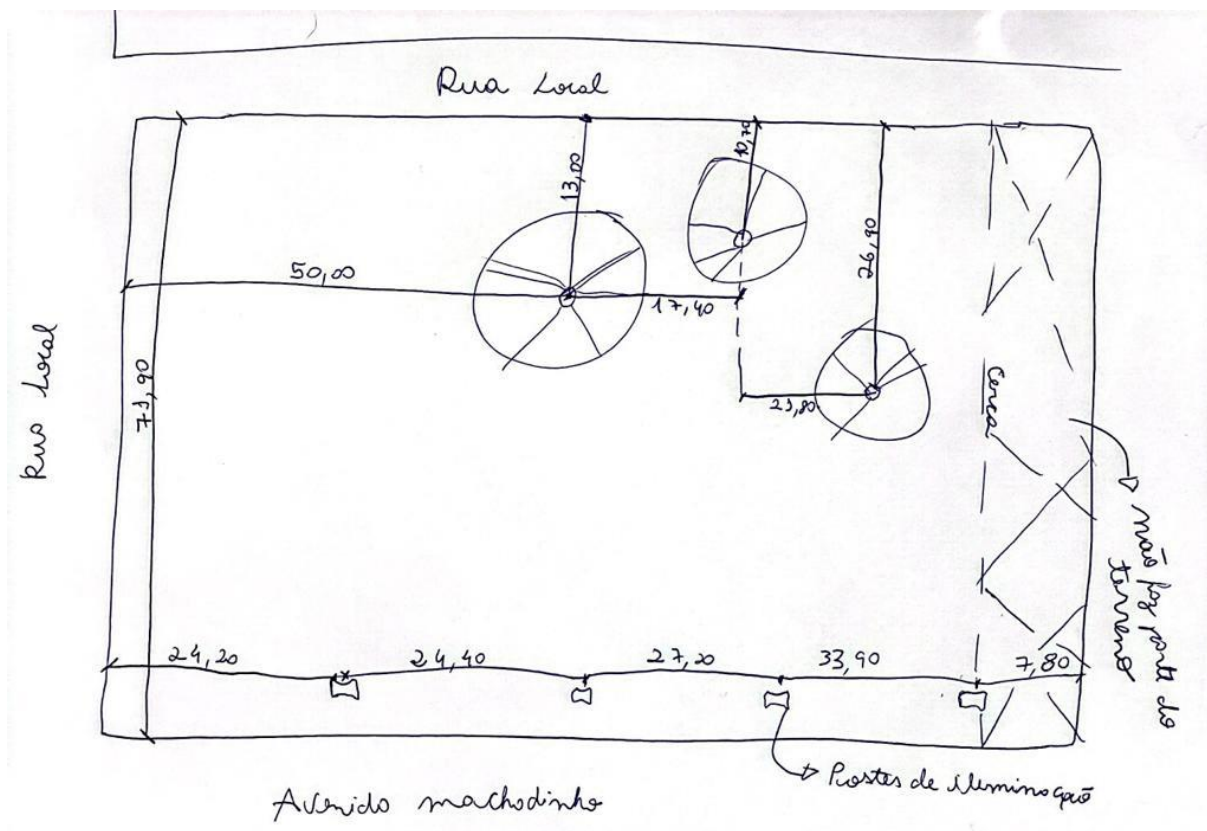 Rua Local
13,00
10,70
26,90
50,00
17,40
Rua Local
23,80
Cerca
não faz parte do
terreno
24,20
24,40
27,20
33,90
7,80
Postes de iluminação
Avenida machadinho